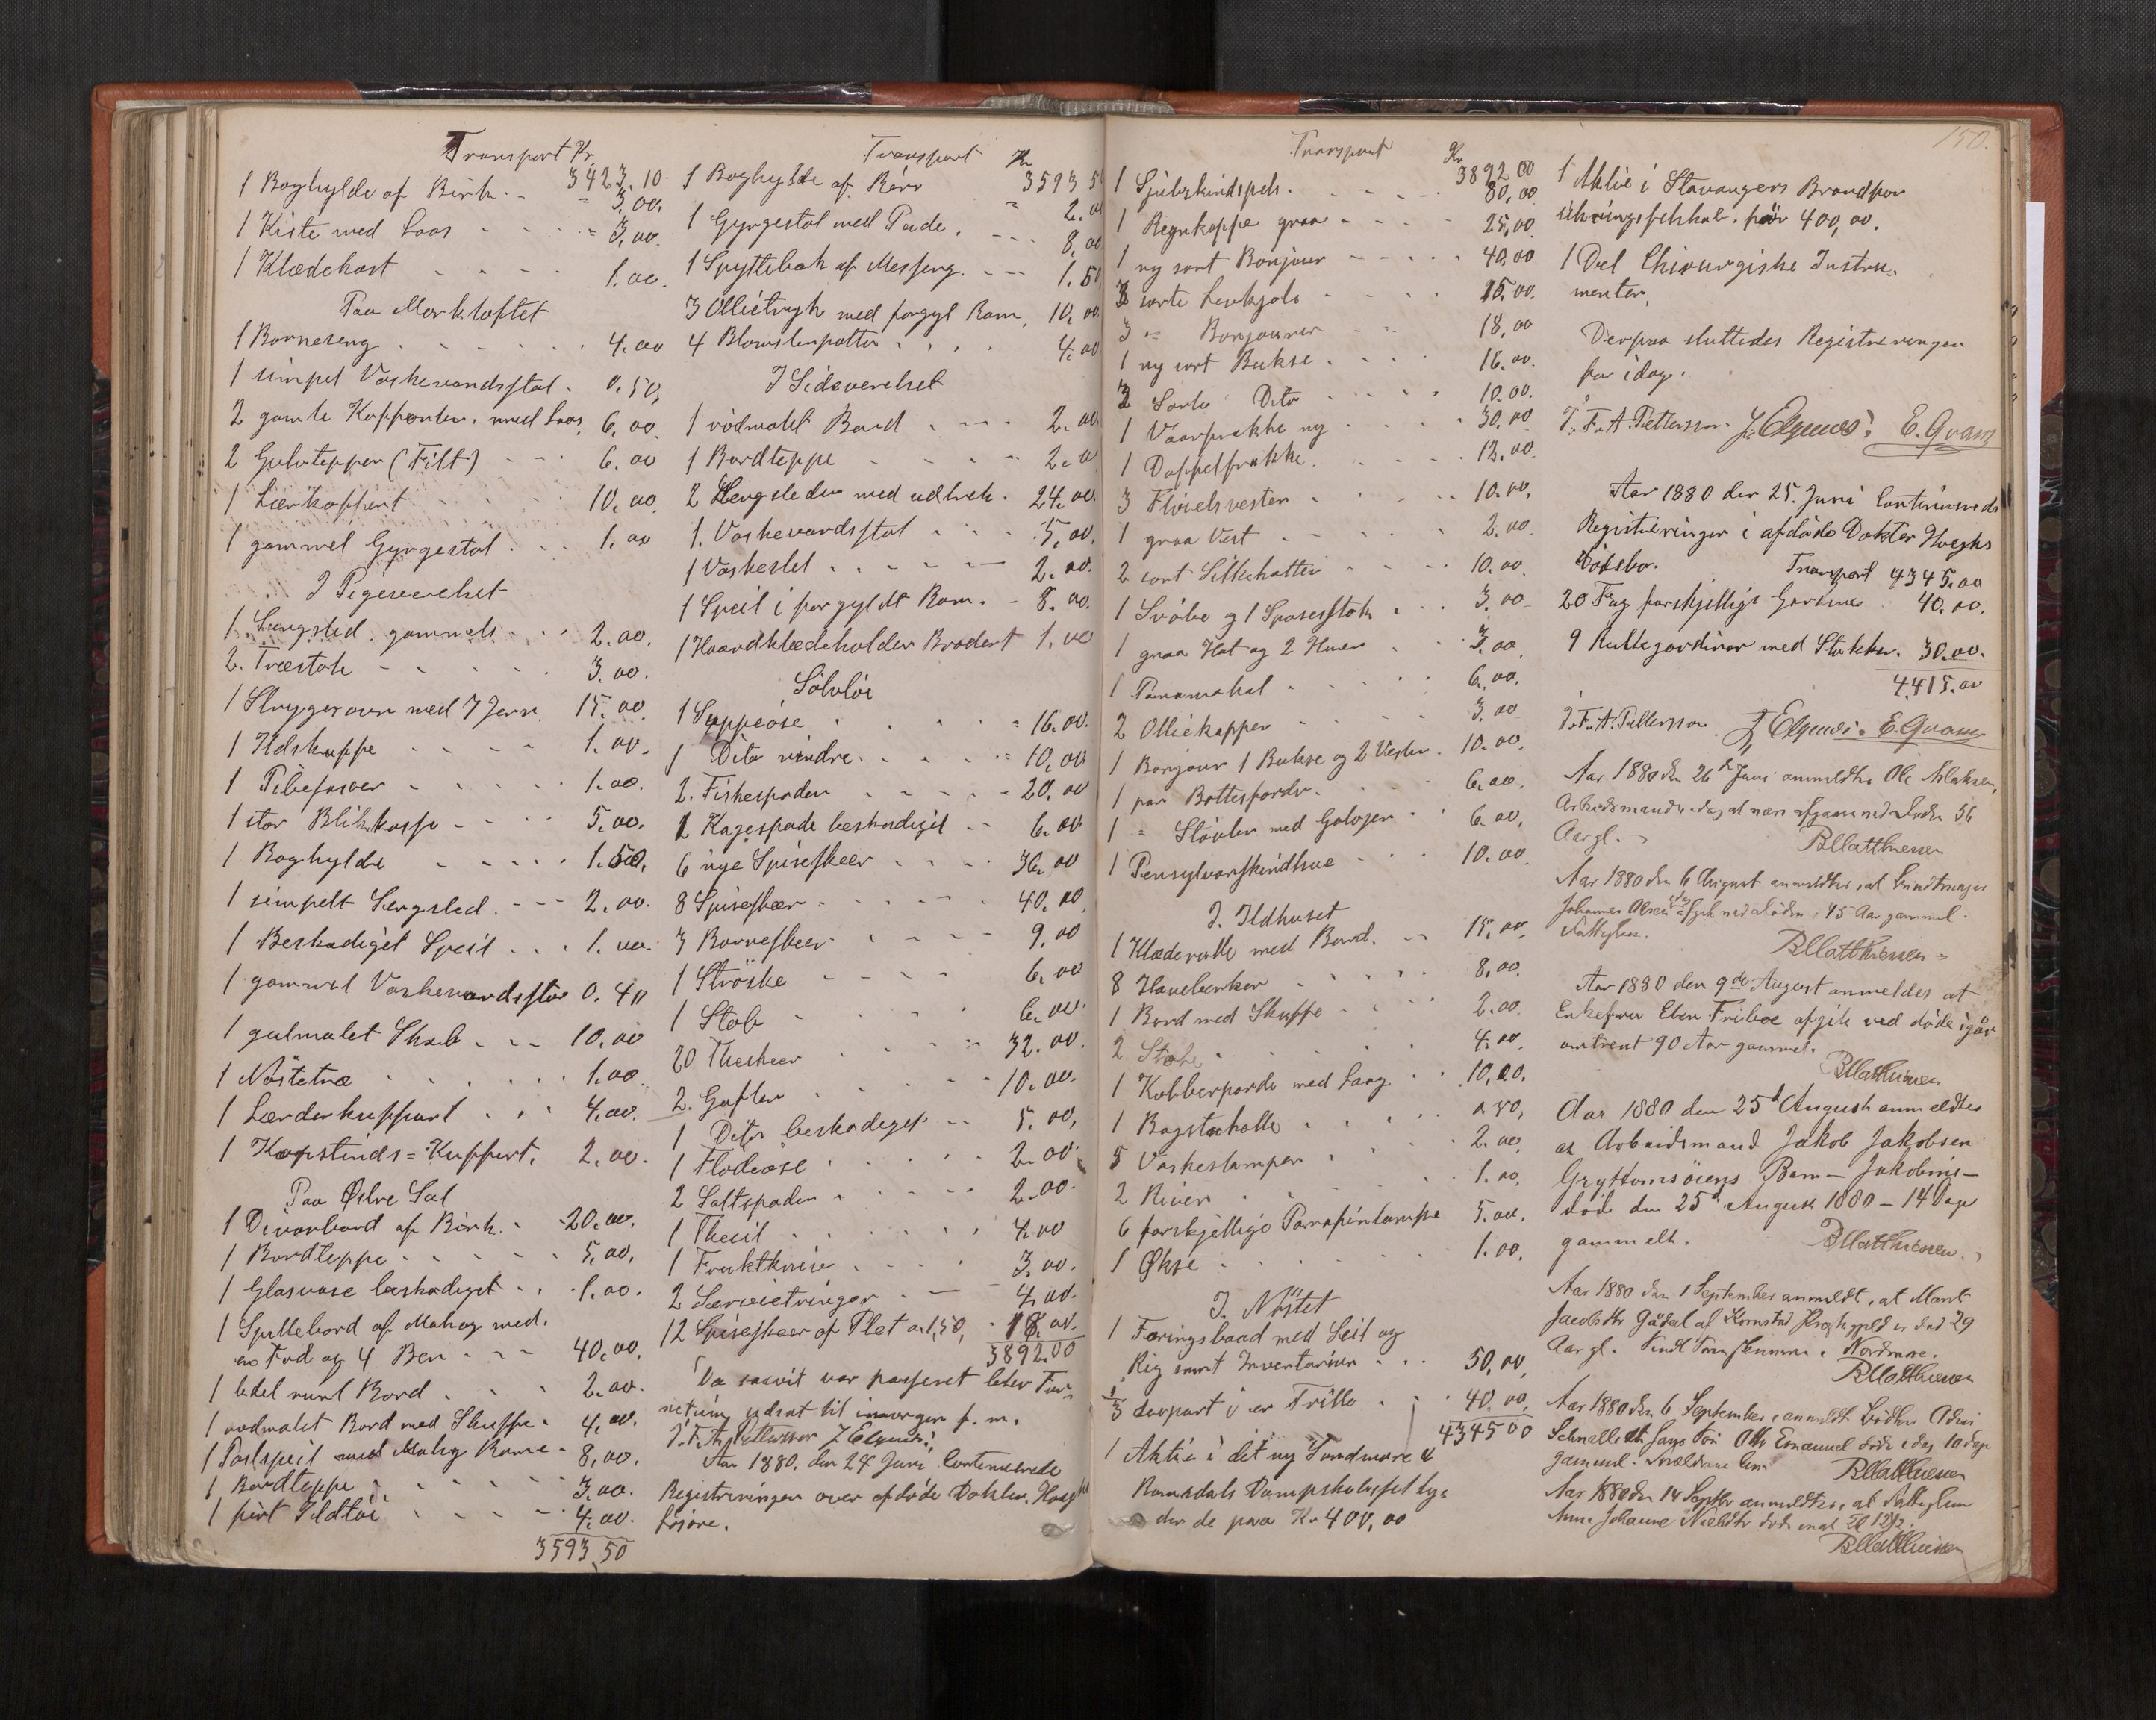 Transport Kr. 3423,10
1 Boghylde af Birk - " 3,00.
1 Kiste med Laas - - - " 3,00.
1 Klædekost - - - 1.00.
Paa Mørkloftet
1 Barneseng - - - - 4.00
1 simpel Vaskevandsstol - 0.50,
2 gamle Kofferter, med Laas 6,00.
2 Gulvtepper (Filt) - - - 6,00
1 Lærkoffert - - - 10,00.
1 gammel Gyngestol . . . 1.00
I Pigeværelset
1 Sengsted gammelt . . . 2.00.
2. Træstole - - - - 3.00.
1 Strygeovn med 7 Jern. 15.00.
1 Ildskuffe - - - - 1.00.
1 Pibefoser - - - - 1.00.
1 stor Blikkasse - - - - 5.00.
1 Boghylde - - - - 1.50,
1 simpelt Sengsted. - - - 2.00.
1 Beskadiget Speil . . . 1.00.
1 gammel Vaskevandsstol 0.40
1 gulmalet Skab - - - 10,00
1 Nøstetræ - - - - 1.00.
1 Læderkuffert . . . 4.00.
1 Kapskinds=Kuffert. 2,00.
Paa Øvre Sal
1 Divanbord af Birk. - 20.00.
1 Bordteppe - - - - 5,00,
1 Glasvase beskadiget . . 1.00.
1 Spillebord af Mahog med.
en Fod og 4 Ben - - - 40,00.
1 lidet rundt Bord . . . 2.00.
1 rødmalet Bord med Skuffe. 4,00.
1 Toilspeil med Mahog Rame - 8,00.
1 Bordteppe - - - - 3,00.
1 pirt Ildtøi - - - - 4,00.
3593,50
Transport Kr. 3593 50
1 Boghylde af Rør " 2.00
1 Gyngestol med Pude. - - - 8,00
1 Spyttebak af Messeng. - - - 1.50
3 Olietryk med forgyl Ram, 10,00
4 Blomsterpotter . . . . 4,00
I Sideværelset
1 rødmalet Bord . - - - 2.00
1 Bordteppe - - - - 2.00
2 Sengsteder med udtræk. 24.00.
1. Vaskevandsstol - - - 5,00.
1 Vaskestel . . . . - 2.00.
1 Speil i forgyldt Ram. - 8.00.
1 Haandklædeholder Broderet 1.00
Sølvtøi
1 Suppeøse . . . . " 16.00.
1 Dito mindre. . . . " 10,00
2. Fiskespader - - - - 20,00
1 Kagespade beskadiget - - 6.00
6 nye Spiseskeer - - - - 36,00
8 Spiseskeer - - - - 40,00
3 Barneskeer . - - - 9,00
1 Strøske - - - - 6,00
1 Stob - - - - 6,00.
20 Theskeer . . . " 32.00.
2. Gafler - - - - 10.00.
1 Dito beskadeget - - 5.00,
1 Flødeøse . . . . 2.00.
2 Saltspader . . - - 2.00.
1 Thesil . . . . . 4.00
1 Fruktkniv . . . . 3,00.
2 Servietringer - - 4,00.
12 Spiseskeer af Plet a 1,50, - 18.00.
3892.00
Da saavit var passeret blev For-
retning udsat til imorgen f. m.
J. F. A. Pettersson J Elgenes.
Aar 1880. den 24 Juni Continuerede
Registreringen over afdøde Doktor Hoeghs
løsøre.
150.
Transport Kr 3892 00
1 Sjubskindspels. - - - 80,00
1 Regnkappe graa - - - - 25,00
1 ny sort Bonjour - - - - 40,00
3 sorte Livkjole - - - 15.00.
3 " Bonjourer - - - 18,00
1 ny sort Bukse . - - - 16.00.
2 Sorte Dito - - - 10.00.
1 Vaarfrakke ny - - - - 30.00
1 Doppelfrakke. - - - 12.00.
3 Fløielsvester - - - - 10.00.
1 graa Vest - - - - 2.00.
2 sort Silkehatter - - - 10.00.
1 Svøbe og 1 Spaserstok . . 3.00
1 graa Hat og 2 Huer . . 3,00
1 Panamahat - - - - 6.00.
2 Oliekapper - - - - 3.00
1 Bonjour 1 Bukse og 2 Vester. 10.00.
1 par Bottesforde. - - 6.00.
1 " Støvler med Galoger - 6.00.
1 Pensylvanskindhue - - - 10.00.
I. Ildhuset
1 Klæderulle med Bord. - 15.00.
8 Havebenker - - - 8,00.
1 Bord med Skuffe - - - 2.00.
2 Stole . . . . . 4.00.
1 Kobberpande med Laag . . 10,00.
1 Bagstehelle . . . . 0.50,
5 Vaskestamper . . . . 2.00.
2 River . . . . 1.00,
6 forskjellige Parafinlamper 5.00.
1 Økse . . . . . 1.00.
I. Nøstet
1 Færingsbaad med Seil og
Rig samt Inventarium - - - 50,00
1/3 depart i en Trille . . . 40.00,
4345 00
1 Aktie i det ny Søndmøre &
Romsdals Dampskibsselskap
der de paa Kr 400,00
1 Aktie i Stavangers Brandfor
sikringsselskab. paa 400,00.
1 Del Chirurgiske Instru-
menter.
Derpaa sluttedes Registreringen
for idag.
J. F. A. Pettersson. J. Elgenes. E. Qvam
Aar 1880 den 25. Juni Continueredes
Registreringen i afdøde Doktor Hoeghs
Dødsbo. Transport 4345.00
20 Fag forskjellige Gardiner . 40.00.
9 Rullegardiner med Stokker. 30.00.
4,415.00
J. F. A. Pettersson J Elgenes. E. Qvam
Aar 1880 den 26de Juni anmeldtes Ole Aslaksen,
Arbeidsmand idag at være afgaaet ved Døden 56
Aar gl. - BMatthiessen
Aar 1880 den 6 August anmeldtes, at
Johannes Olsen idag afgik ved Døden, 45 Aar gammel.
Fattiglem. BMatthiessen
Aar 1880 den 9de August anmeldes at
Enkefrue Elen Friboe afgik ved døde igaar
omtrent 90 Aar gammel.
BMatthiessen
Aar 1880 den 25de August anmeldtes
at Arbeidsmand Jakob Jakobsen
Gryttomsøiens Barn - Jakobine -
døde den 25de August 1880 - 14 Dage
gammelt. BMatthiessen.
Aar 1880 den 1 September anmeldt, at Marit
Jacobsdtr Gådal af Kornstad Præstegjeld er død 29
Aar gl. Nordmøre.
BMatthiessen
Aar 1880 den 6 September, anmeldt
Søn Otto Emanuel døde idag 10 dage
gammel. Forældrene leve BMatthiessen
Aar 1880 den 14 Septbr anmeldtes, at Fattiglem
Anne Johanne Nielsdtr døde inat Kl 12½.
BMatthiessen